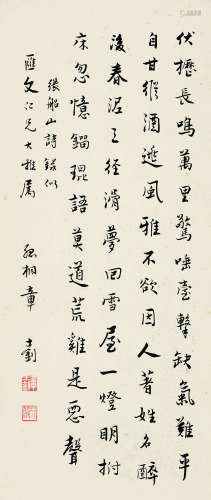 伏櫪長鳴萬里驚唾壺擊缺氣難平
自甘縱酒逃風雅不欲因人著姓名醉
後春泥三徑滑夢回雪屋一燈明拊
床忽憶鎦琨語莫道荒雞是惡聲
張船山詩錄似
匯文仁兄大雅屬
孤桐章士釗